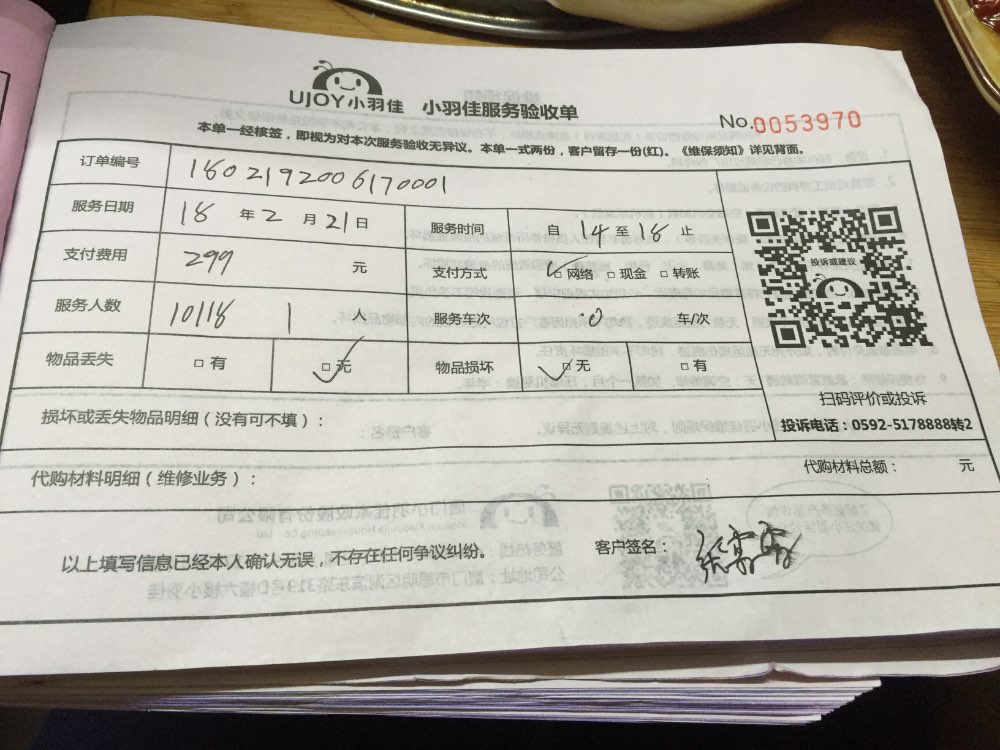 UJOY小羽佳 小羽佳服务验收单
No.0053970
本单一经核签，即视为对本次服务验收无异议。本单一式两份，客户留存一份(红)。《维保须知》详见背面。
订单编号 1802192006170001
服务日期 18 年 2 月 21 日 服务时间 自 14 至 18 止
支付费用 299 元 支付方式 □网络 □现金 □转账
服务人数 10118 1 人 服务车次 0 车/次
物品丢失 □有 □无 物品损坏 □无 □有
投诉或建议
扫码评价或投诉
投诉电话：0592-5178888转2
损坏或丢失物品明细（没有可不填）：
代购材料明细（维修业务）： 代购材料总额： 元
以上填写信息已经本人确认无误，不存在任何争议纠纷。 客户签名：